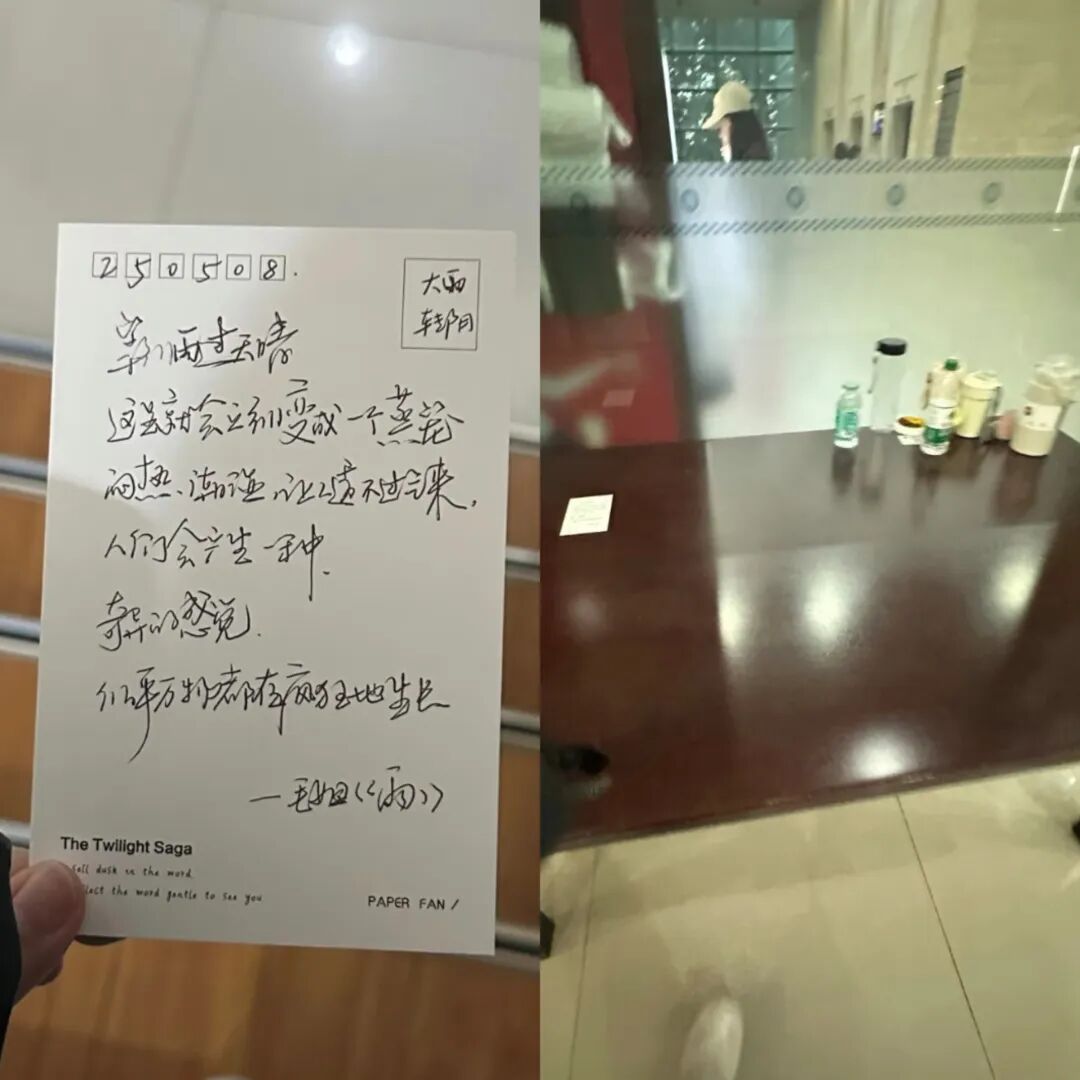 250508.
大雨
转阴
等到雨过天晴
这里就会立刻变成一个蒸笼
闷热、潮湿、让人透不过气来.
人们会产生一种.
奇异的感觉.
似乎万物都在疯狂地生长
—毛姆《雨》
The Twilight Saga
sell dusk in the word.
lect the word gentle to see you
PAPER FAN /